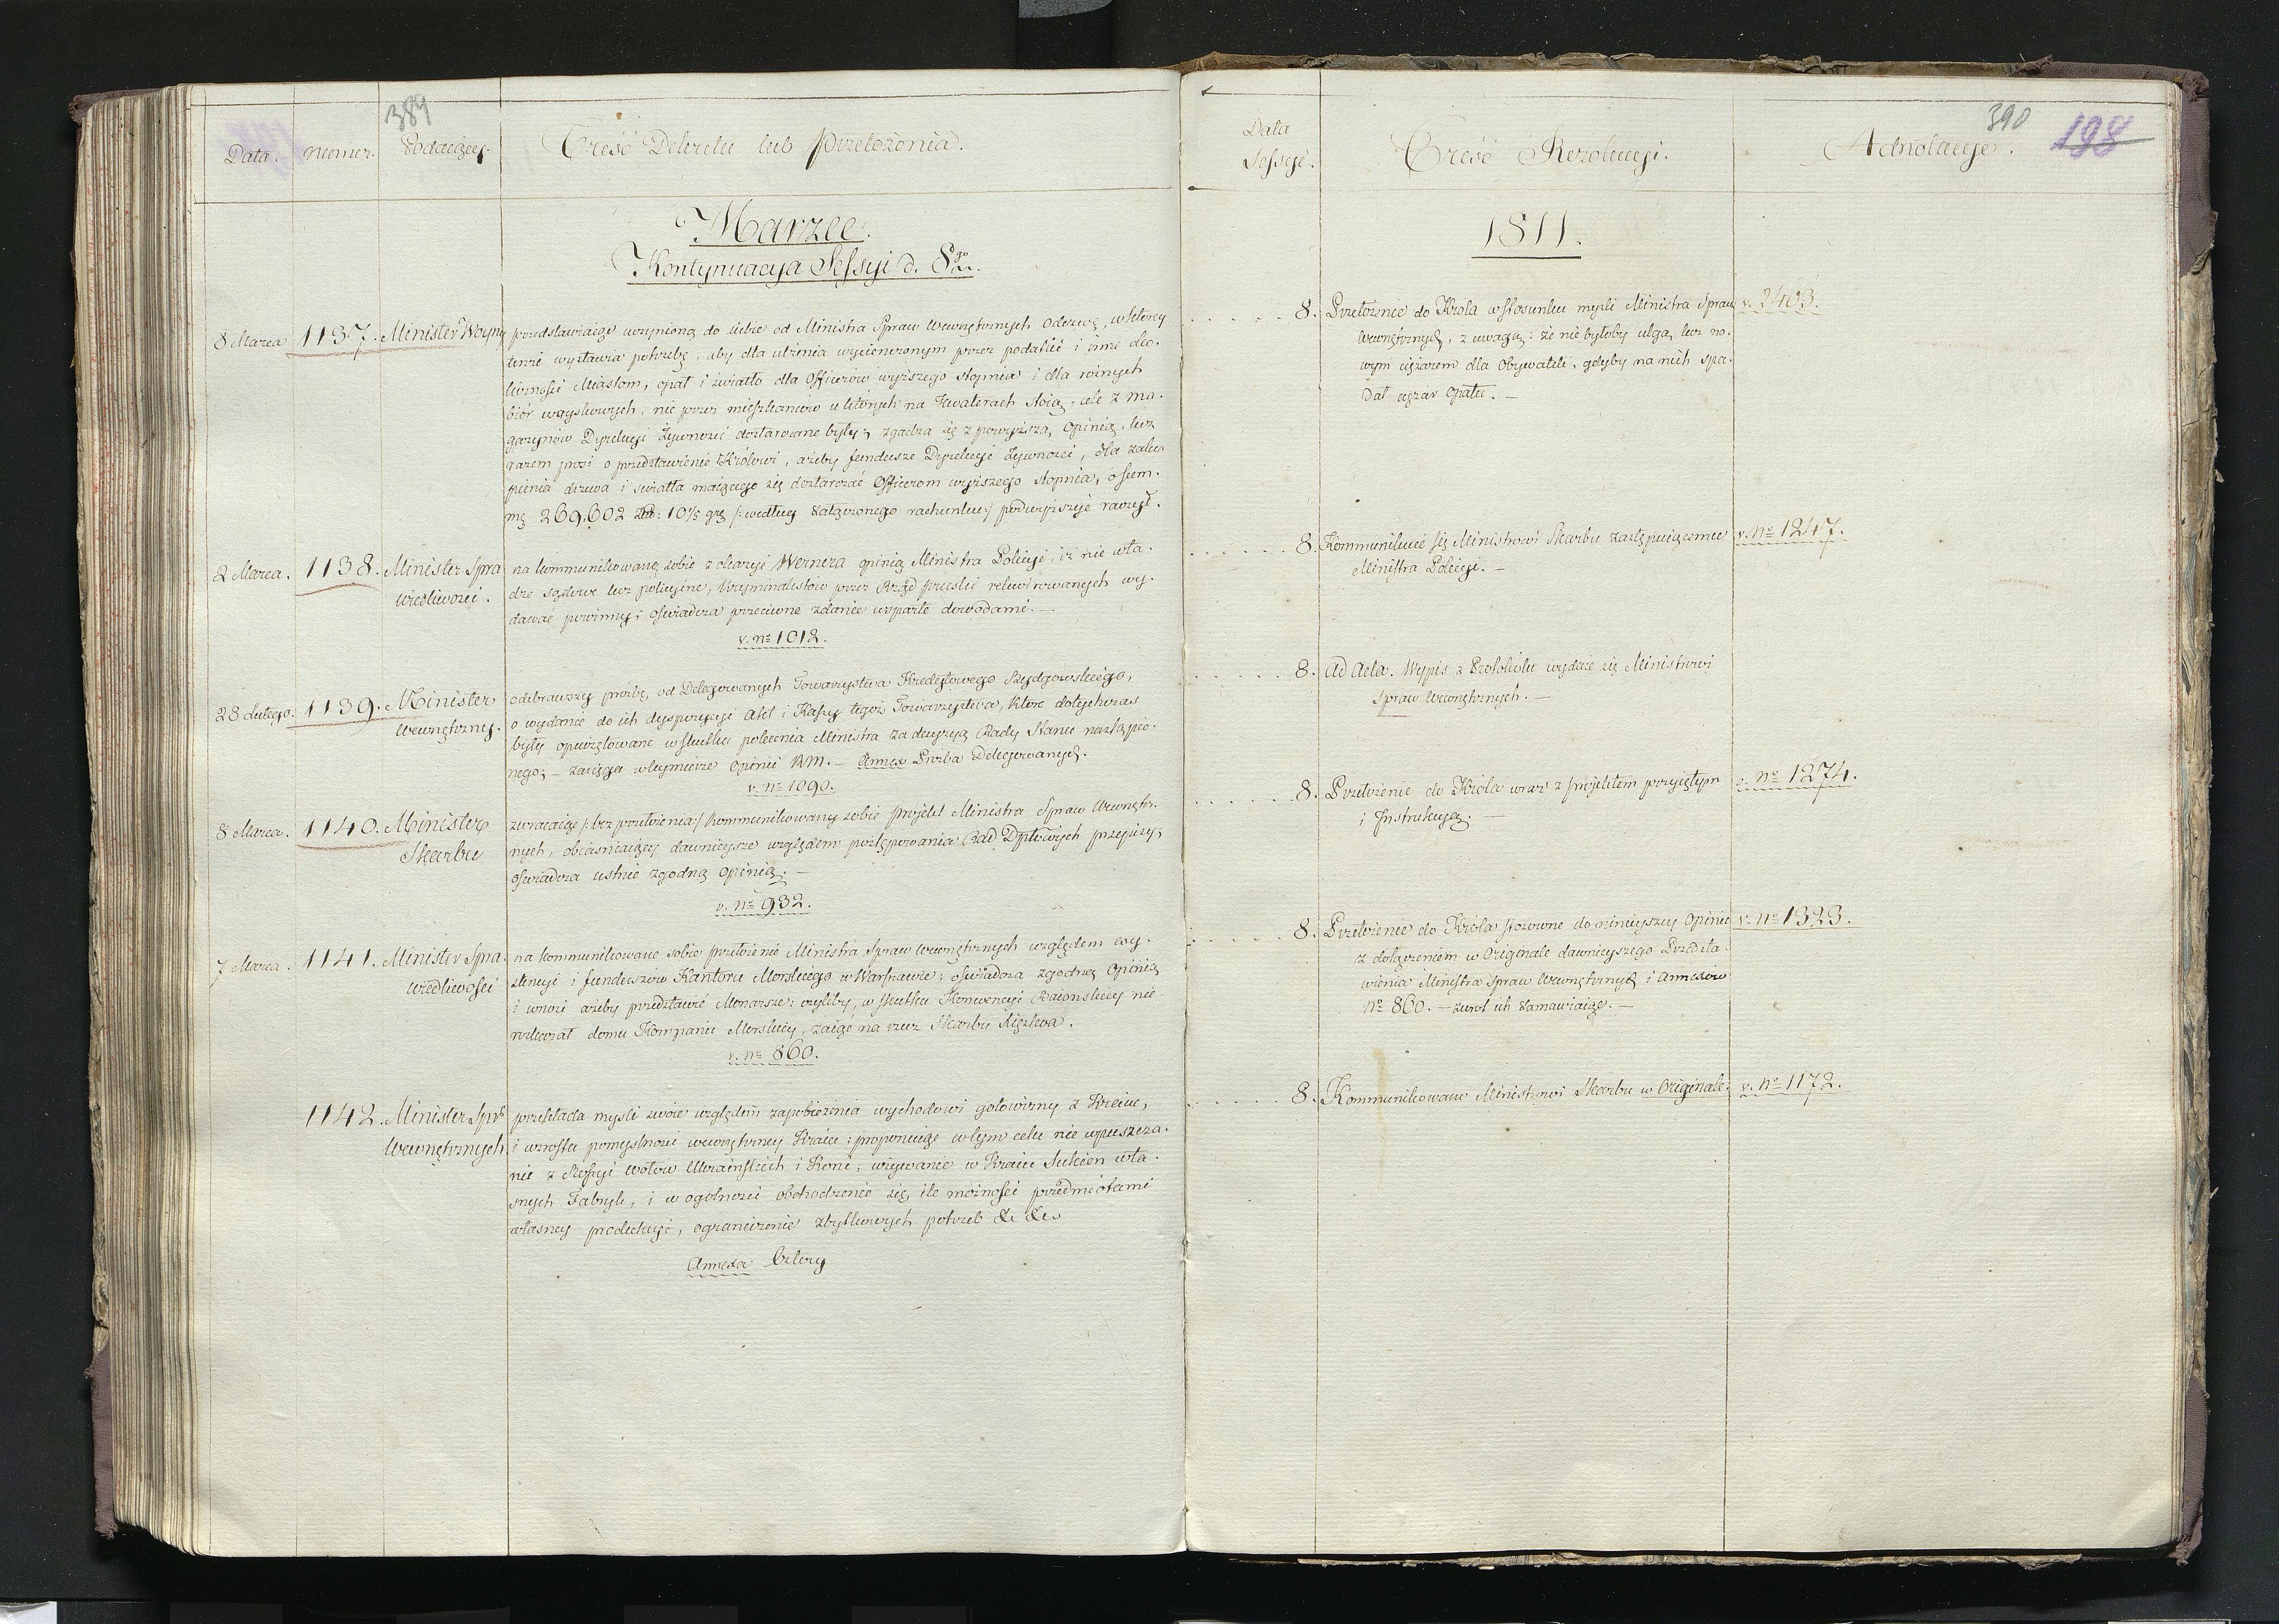 389
Data. numer. Podaiący. Treść Dekretu lub przełożenia.
Marzec.
Kontynuacya Sessyi d. 8go
8 Marca 1137. Minister Woyny przedstawiaiąc uczynioną do siebie od Ministra Spraw Wewnętrznych Odezwę, w którey
tenże wystawia potrzebę, aby dla ulżenia wycieńczonym przez podatki i inne dole-
gliwości Miastom, opał i światło dla Officerów wyższego stopnia i dla różnych
biór woyskowych, nie przez mieszkańców u których na kwaterach stoią, ale z ma-
gazynów Dyrekcyi Żywności dostarczane były; zgadza się z powyższą opinią, lecz
razem prosi o przedstawienie Królowi, ażeby fundusze Dyrekcyi Żywności, dla zaku-
pienia drzewa i światła maiącego się dostarczać Officerom wyższego stopnia, o sum-
mę 269,602 złp: 10⅓ grę /: według załączonego rachunku :/ podwyższyć raczył.
2 Marca. 1138. Minister Spra na kommunikowaną sobie z okazyi Wernera opinią Ministra Policyi, iż nie wła-
wiedliwości. dze sądowe lecz policyine, kryminalistów przez Rząd pruski rekwirowanych wy-
dawać powinny; oświadcza przeciwne zdanie wsparte dowodami.—
v. no 1012.
28 Lutego. 1139. Minister odebrawszy prośbę, od Delegowanych Towarzystwa Kredytowego Bydgoskiego,
Wewnętrzny. o wydanie do ich dyspozycyi Akt i Kassy tegoż Towarzystwa, które dotychczas
były opieczętowane w skutku polecenia Ministra za decyzyą Rady Stanu nastąpio-
nego; — zasięga w tey mierze opinii RM. — Annex Prośba Delegowanych.
v. no 1090.
8 Marca. 1140. Minister zwracaiąc /: bez przełożenia :/ kommunikowany sobie proiekt Ministra Spraw Wewnętrz-
Skarbu nych, obiaśniaiący dawnieysze względem postępowania Rad Dptowych przepisy,
oświadcza ustnie zgodną opinią. —
v. no 932.
7 Marca. 1141. Minister Spra- na kommunikowane sobie przełożenie Ministra Spraw Wewnętrznych względem exy-
wiedliwości stencyi i funduszów Kantoru Morskiego w Warszawie; oświadcza zgodną opinią
i wnosi ażeby przedstawić Monarsze: czyliby, w skutku Konwencyi Baionskiey nie
rozkazał domu Kompanii Morskiey, zaiąć na rzecz Skarbu Xięstwa.
v. no 860.
1142. Minister Spr przekłada myśli swoie względem zapobieżenia wychodowi gotowizny z Kraiu,
Wewnętrznych. i wzrostu pomyślności wewnętrzney Kraiu; proponuiąc w tym celu nie wpuszcza-
nie z Rossyi wołów Ukrainskich i Koni; używanie w Kraiu Sukien wła-
snych Fabryk, i w ogólności obchodzenie się, ile możności przedmiotami
własney produkcyi, ograniczenie zbytkowych potrzeb &c &c
Annexa Cztery
390 198
Data Sessyi. Treść Rezolucyi. Adnotacye.
1811.
8. Przełożenie do Króla w stosunku myśli Ministra Spraw v. 2403.
Wewnętrznych, z uwagą: że nie byłoby ulgą, lecz no-
wym ciężarem dla Obywateli, gdyby na nich spa-
dał ciężar opału. —
8. Kommunikuie się Ministrowi Skarbu zastępuiącemu v. no 1247.
Ministra Policyi. —
8. Ad Acta. Wypis z Protokółu wydaie się Ministrowi
Spraw Wewnętrznych. —
8. Przełożenie do Króla wraz z proiektem przyiętym v. no 1274.
i Instrukcyą. —
8. Przełożenie do Króla stosowne do ninieyszey Opinii v. no 1323.
z dołączeniem w Originale dawnieyszego Przedsta-
wienia Ministra Spraw Wewnętrznych i Annexów
no 860. — zwrot ich zamawiaiąc. —
8. Kommunikowane Ministrowi Skarbu w Originale. v. no 1172.